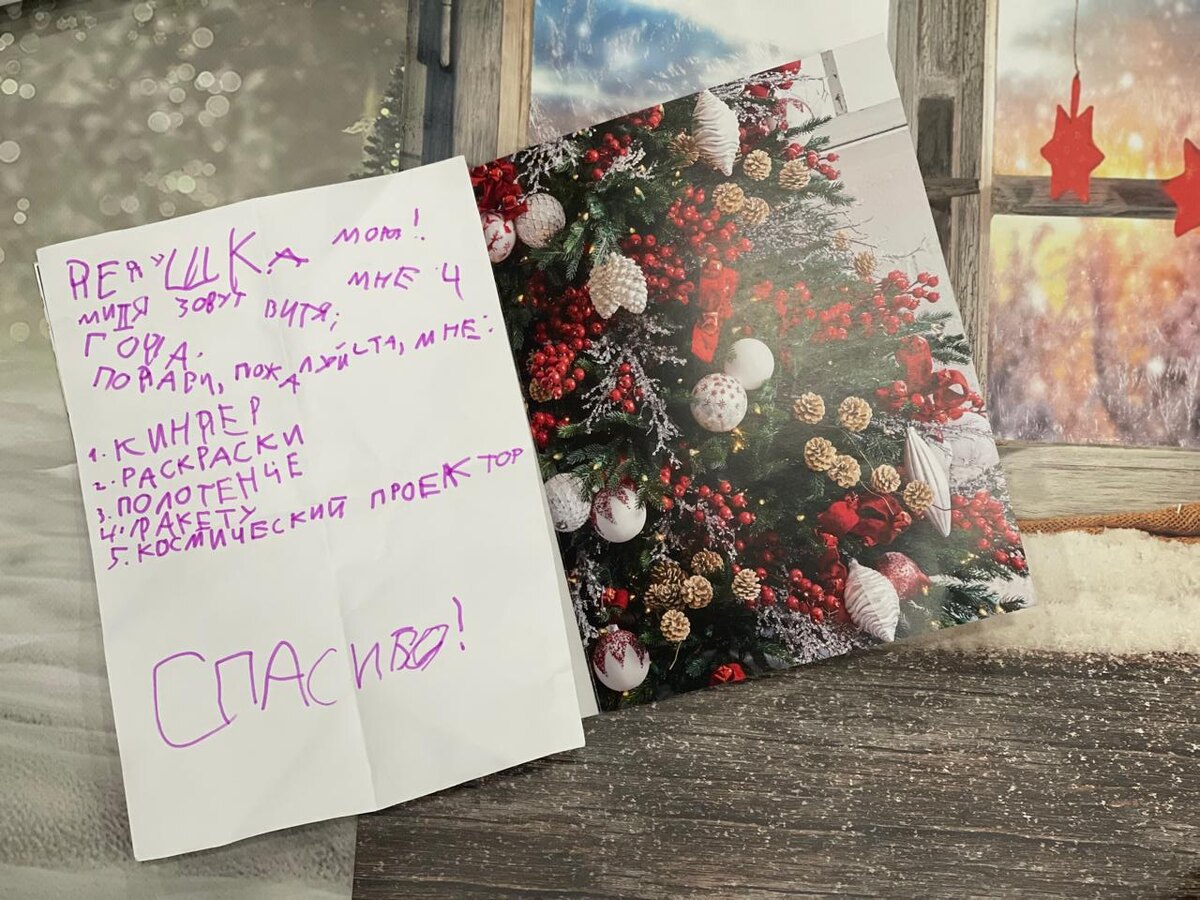 ДЕДУШКА МОЯ!
МИНЯ ЗОВУТ ВИТЯ; МНЕ 4
ГОДА.
ПОДАРИ, ПОЖАЛУЙСТА, МНЕ:
1. КИНДЕР
2. РАСКРАСКИ
3. ПОЛОТЕНЧЕ
4. РАКЕТУ
5. КОСМИЧЕСКИЙ ПРОЕКТОР
СПАСИВО!